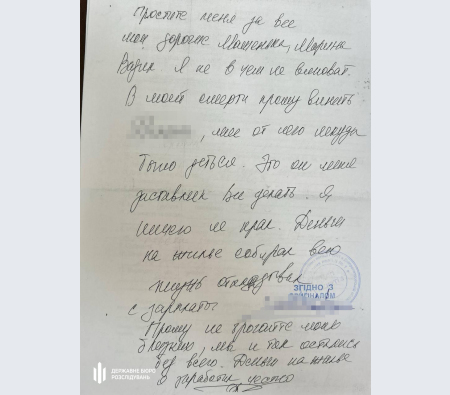 Простите меня за все
мои дорогие Машенька, Марина
Вадик Я не в чем не виноват.
В моей смерти прошу винить
, мне от него некуда
было деться. Это он меня
заставлял все делать. Я
ничего не крал. Деньги
на жилье собирал всю
жизнь откладывал
с зарплаты
Прошу не трогайте мою
семью, мы и так остались
без всего. Деньги на жилье
я заработал честно
ЗГІДНО З
ОРИГІНАЛОМ
ДЕРЖАВНЕ БЮРО
РОЗСЛІДУВАНЬ